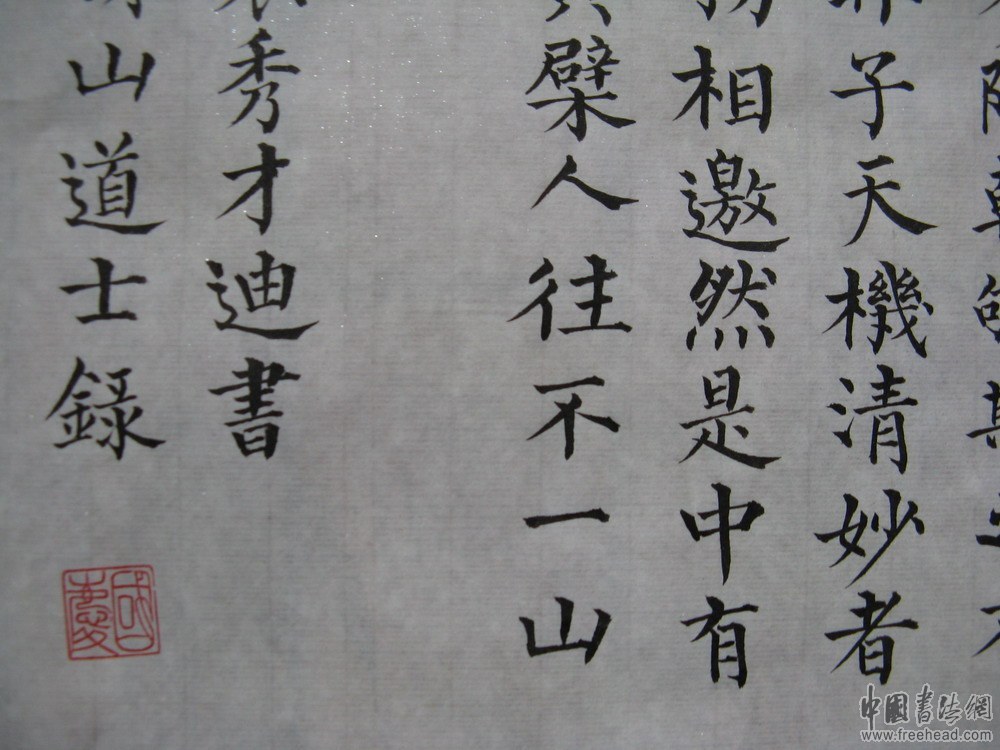 子天機清妙者
相邀然是中有
檗人往不一山
秀才迪書
山道士錄
國慶
中國書法網
www.freehead.com